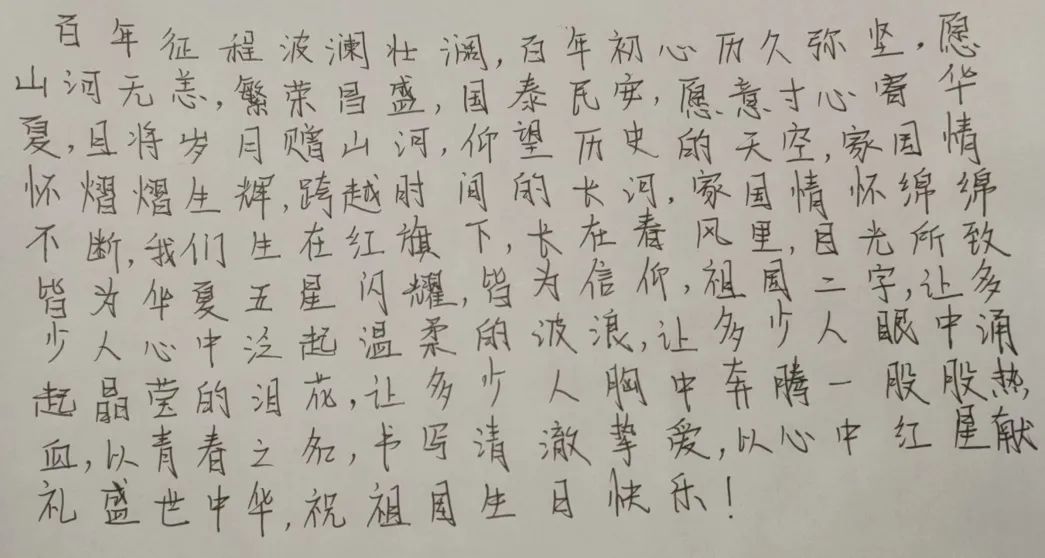 百年征程波澜壮阔,百年初心历久弥坚,愿
山河无恙,繁荣昌盛,国泰民安,愿意寸心寄华
夏,且将岁月赠山河,仰望历史的天空,家国情
怀熠熠生辉,跨越时间的长河,家国情怀绵绵
不断,我们生在红旗下,长在春风里,目光所致
皆为华夏五星闪耀,皆为信仰,祖国二字,让多
少人心中泛起温柔的波浪,让多少人眼中涌
起晶莹的泪花,让多少人胸中奔腾一股股热
血,以青春之名,书写清澈挚爱,以心中红星献
礼盛世中华,祝祖国生日快乐!